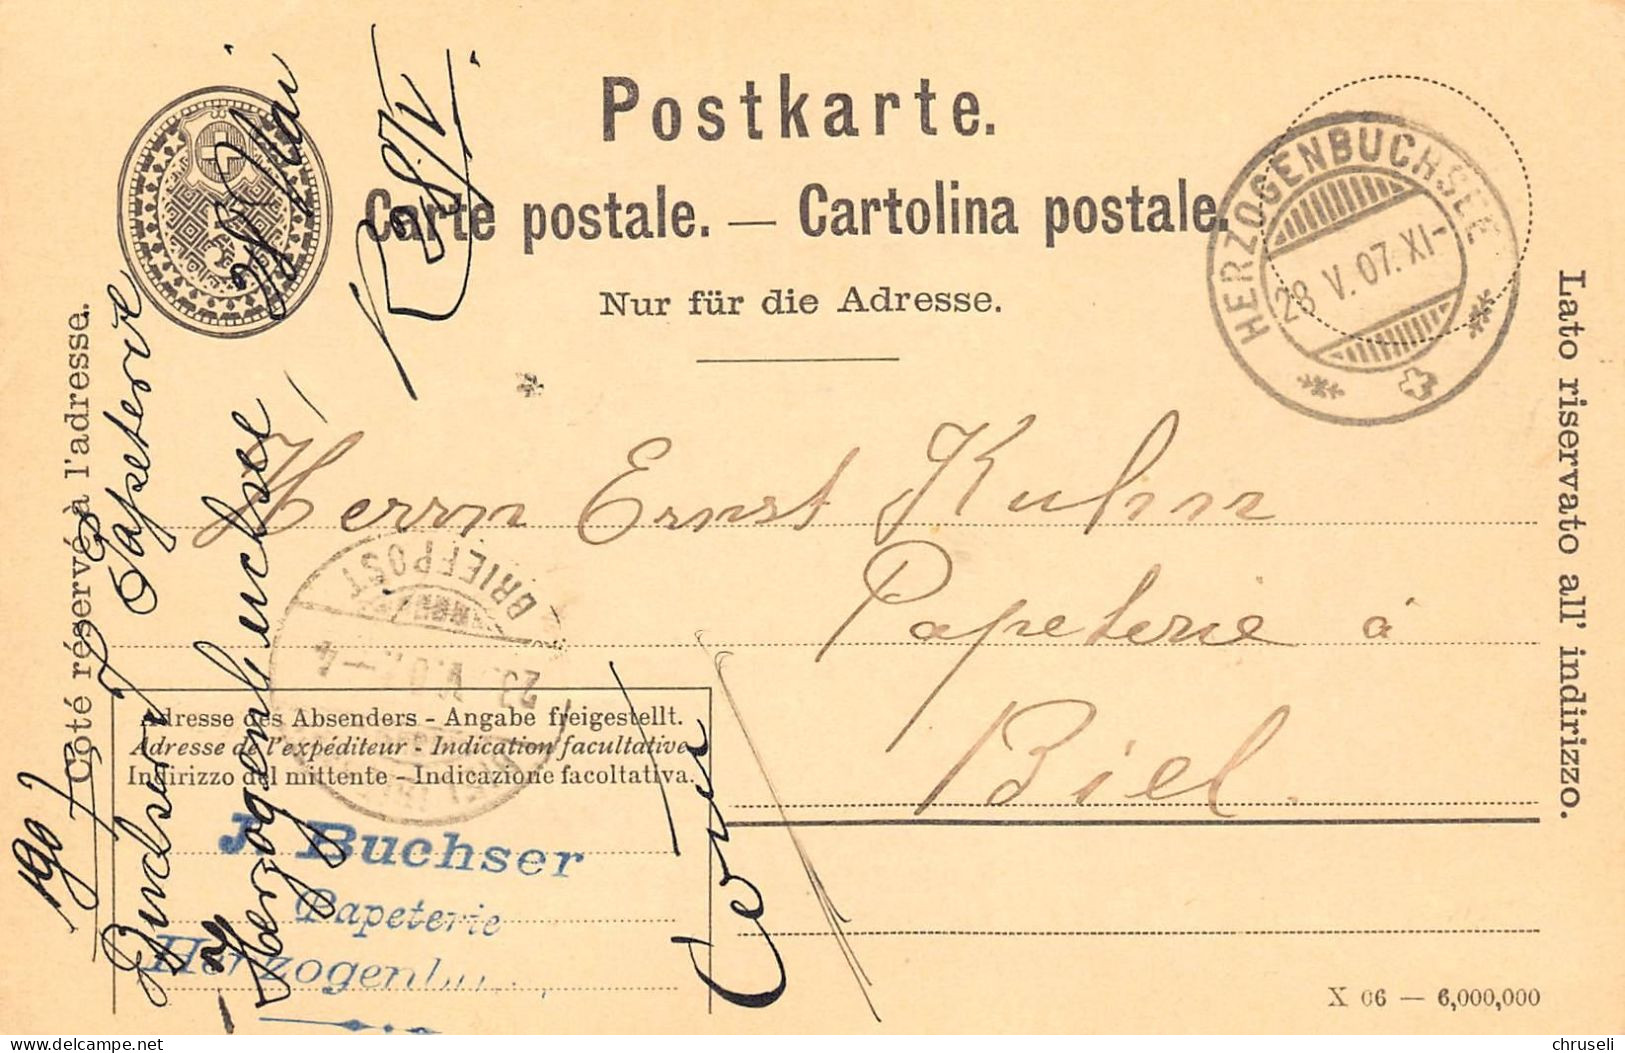 Postkarte.
Carte postale. — Cartolina postale.
Nur für die Adresse.
HERZOGENBUCHSEE
28 V. 07. XI-
Côté réservé à l'adresse.
Lato riservato all' indirizzo.
Herrn Ernst Kuhn
Papeterie à
Biel.
BRIEFPOST
Adresse des Absenders - Angabe freigestellt.
Adresse de l'expéditeur - Indication facultative.
Indirizzo del mittente - Indicazione facoltativa.
J. Buchser
Papeterie
1907
Buchser J. Papeterie
Herzogenbuchsee
28 Mai
R 28/V.
X 06 — 6,000,000
chruseli